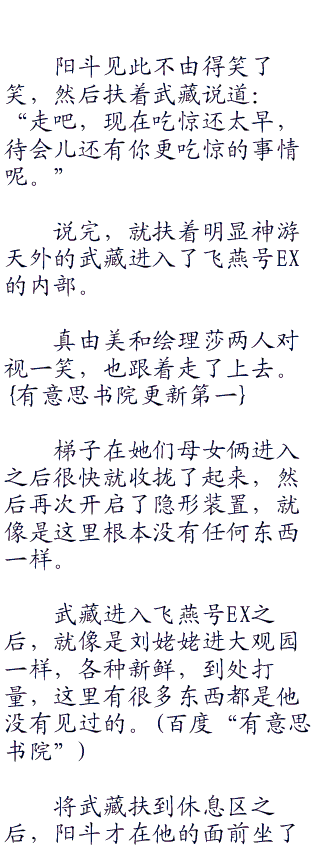 阳斗见此不由得笑了
笑，然后扶着武藏说道：
“走吧，现在吃惊还太早，
待会儿还有你更吃惊的事情
呢。”
说完，就扶着明显神游
天外的武藏进入了飞燕号EX
的内部。
真由美和绘理莎两人对
视一笑，也跟着走了上去。
{有意思书院更新第一}
梯子在她们母女俩进入
之后很快就收拢了起来，然
后再次开启了隐形装置，就
像是这里根本没有任何东西
一样。
武藏进入飞燕号EX之
后，就像是刘姥姥进大观园
一样，各种新鲜，到处打
量，这里有很多东西都是他
没有见过的。(百度“有意思
书院”)
将武藏扶到休息区之
后，阳斗才在他的面前坐了